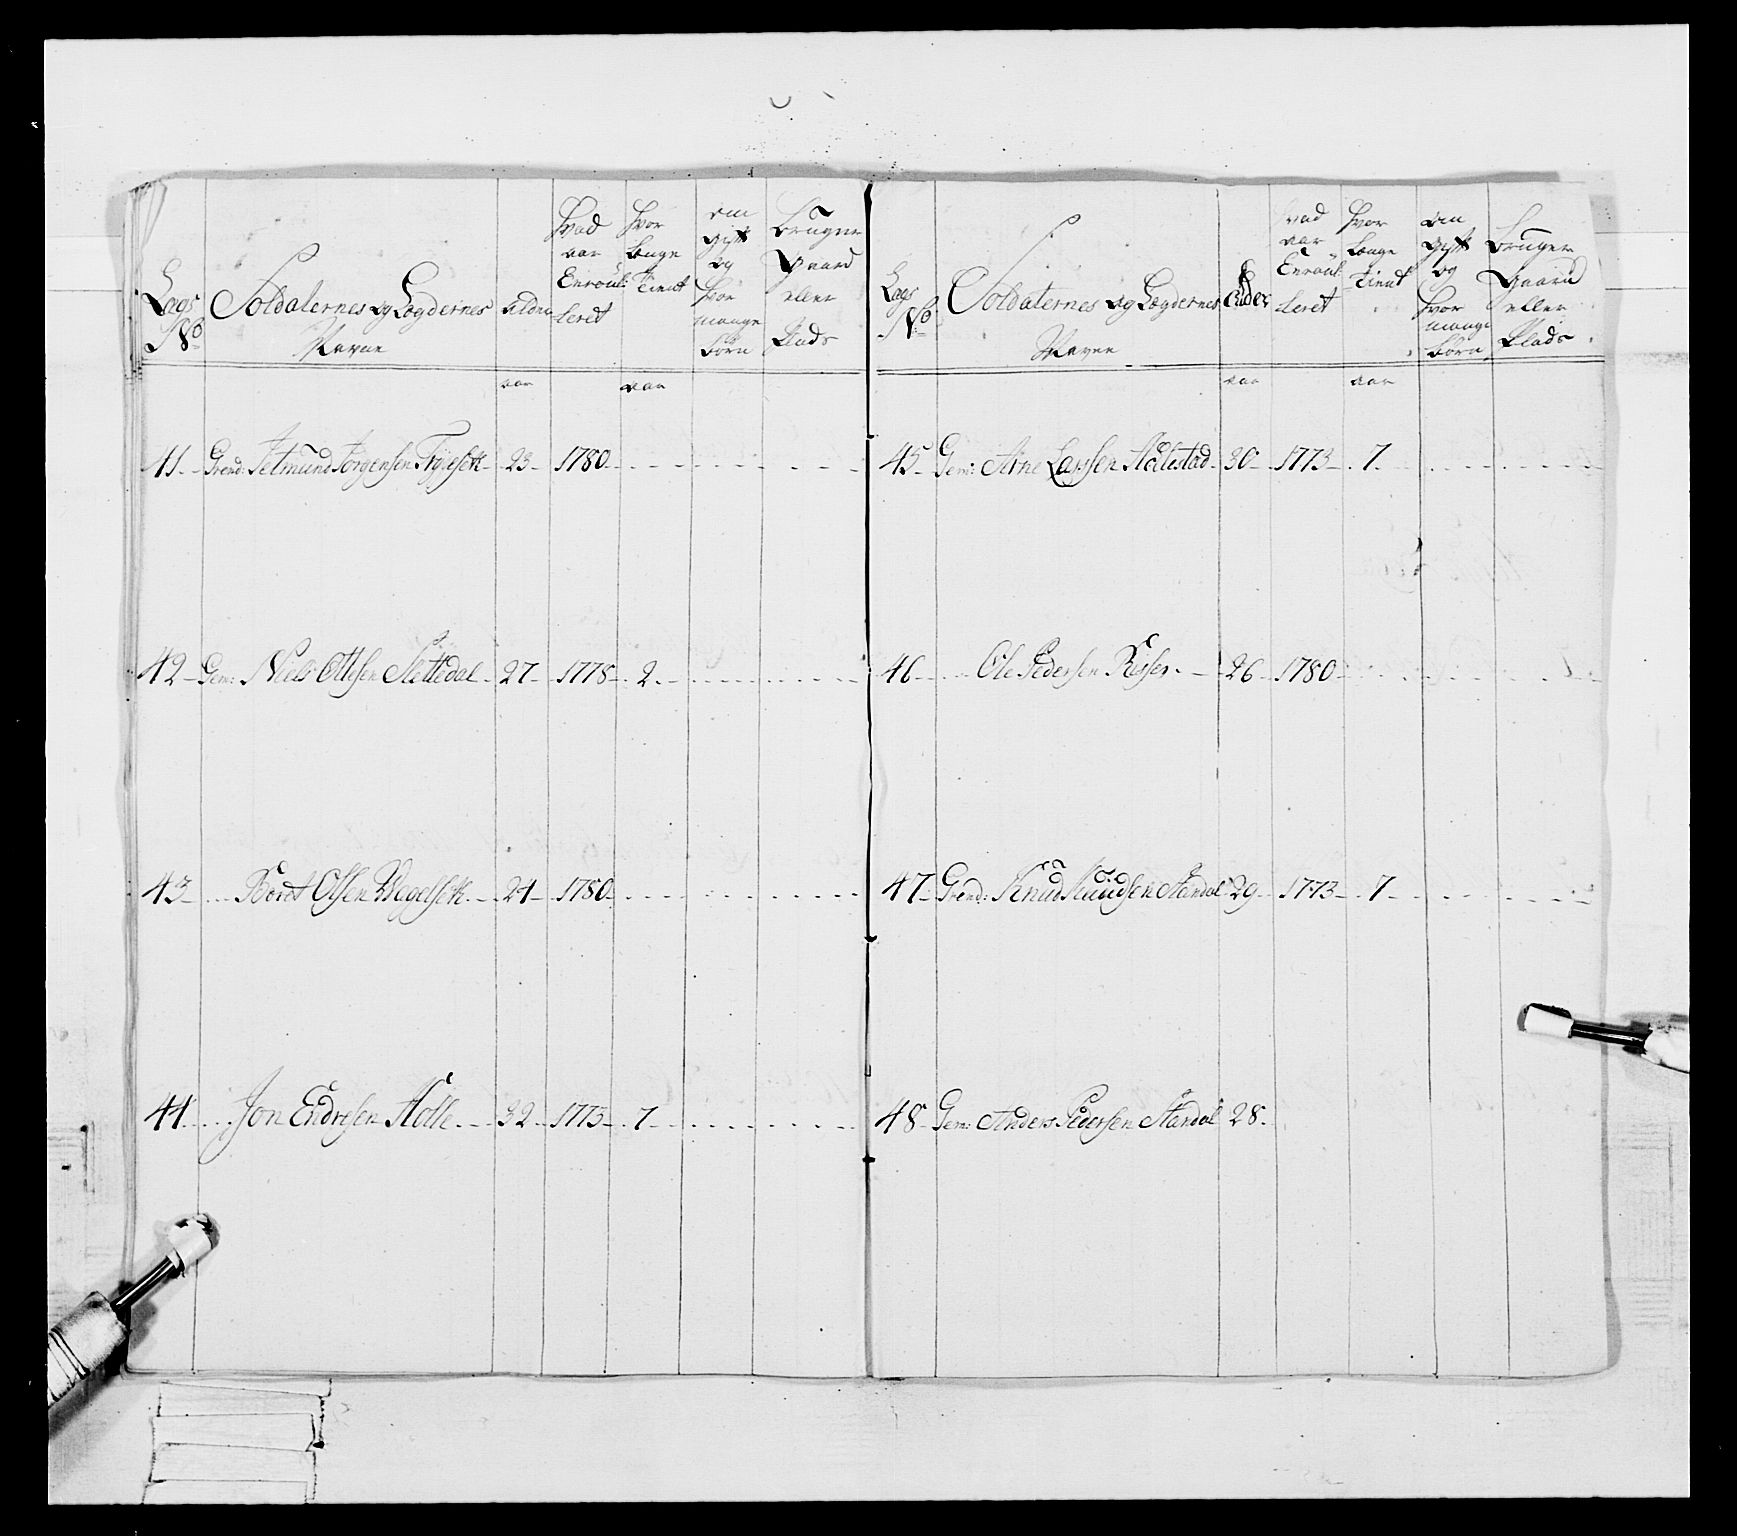 Lægs No
Soldaternes og Lægdernes Navne
Alder
Hvad aar Enroul: leret
hvor længe tient
om gift og hvor mange børn
bruger Gaard eller Plads
aar
aar
41 Grend: Jetmund Jørgensen
23 1780
42 Gem: Niels Ottesen Slettedal 27 1778 2
43 Olsen 24 1780
44 Jon Endresen Aolle 32 1773 7
Lægs No
Soldaternes og Lægdernes Navne
Alder
Hvad aar Enroul: leret
hvor længe tient
om gift og hvor mange børn
bruger Gaard eller Plads
aar
aar
45 Gem: Arne Larssen 30 1773 7
46 Ole Pedersen 26 1780
47 Grend: Knud Knudsen Aandal 29 1773 7
48 Gem: Anders Pedersen Aandal 28